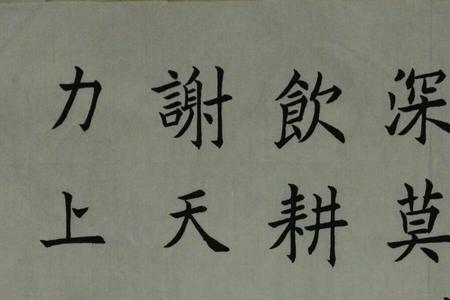 深莫
飲耕
謝天
力上